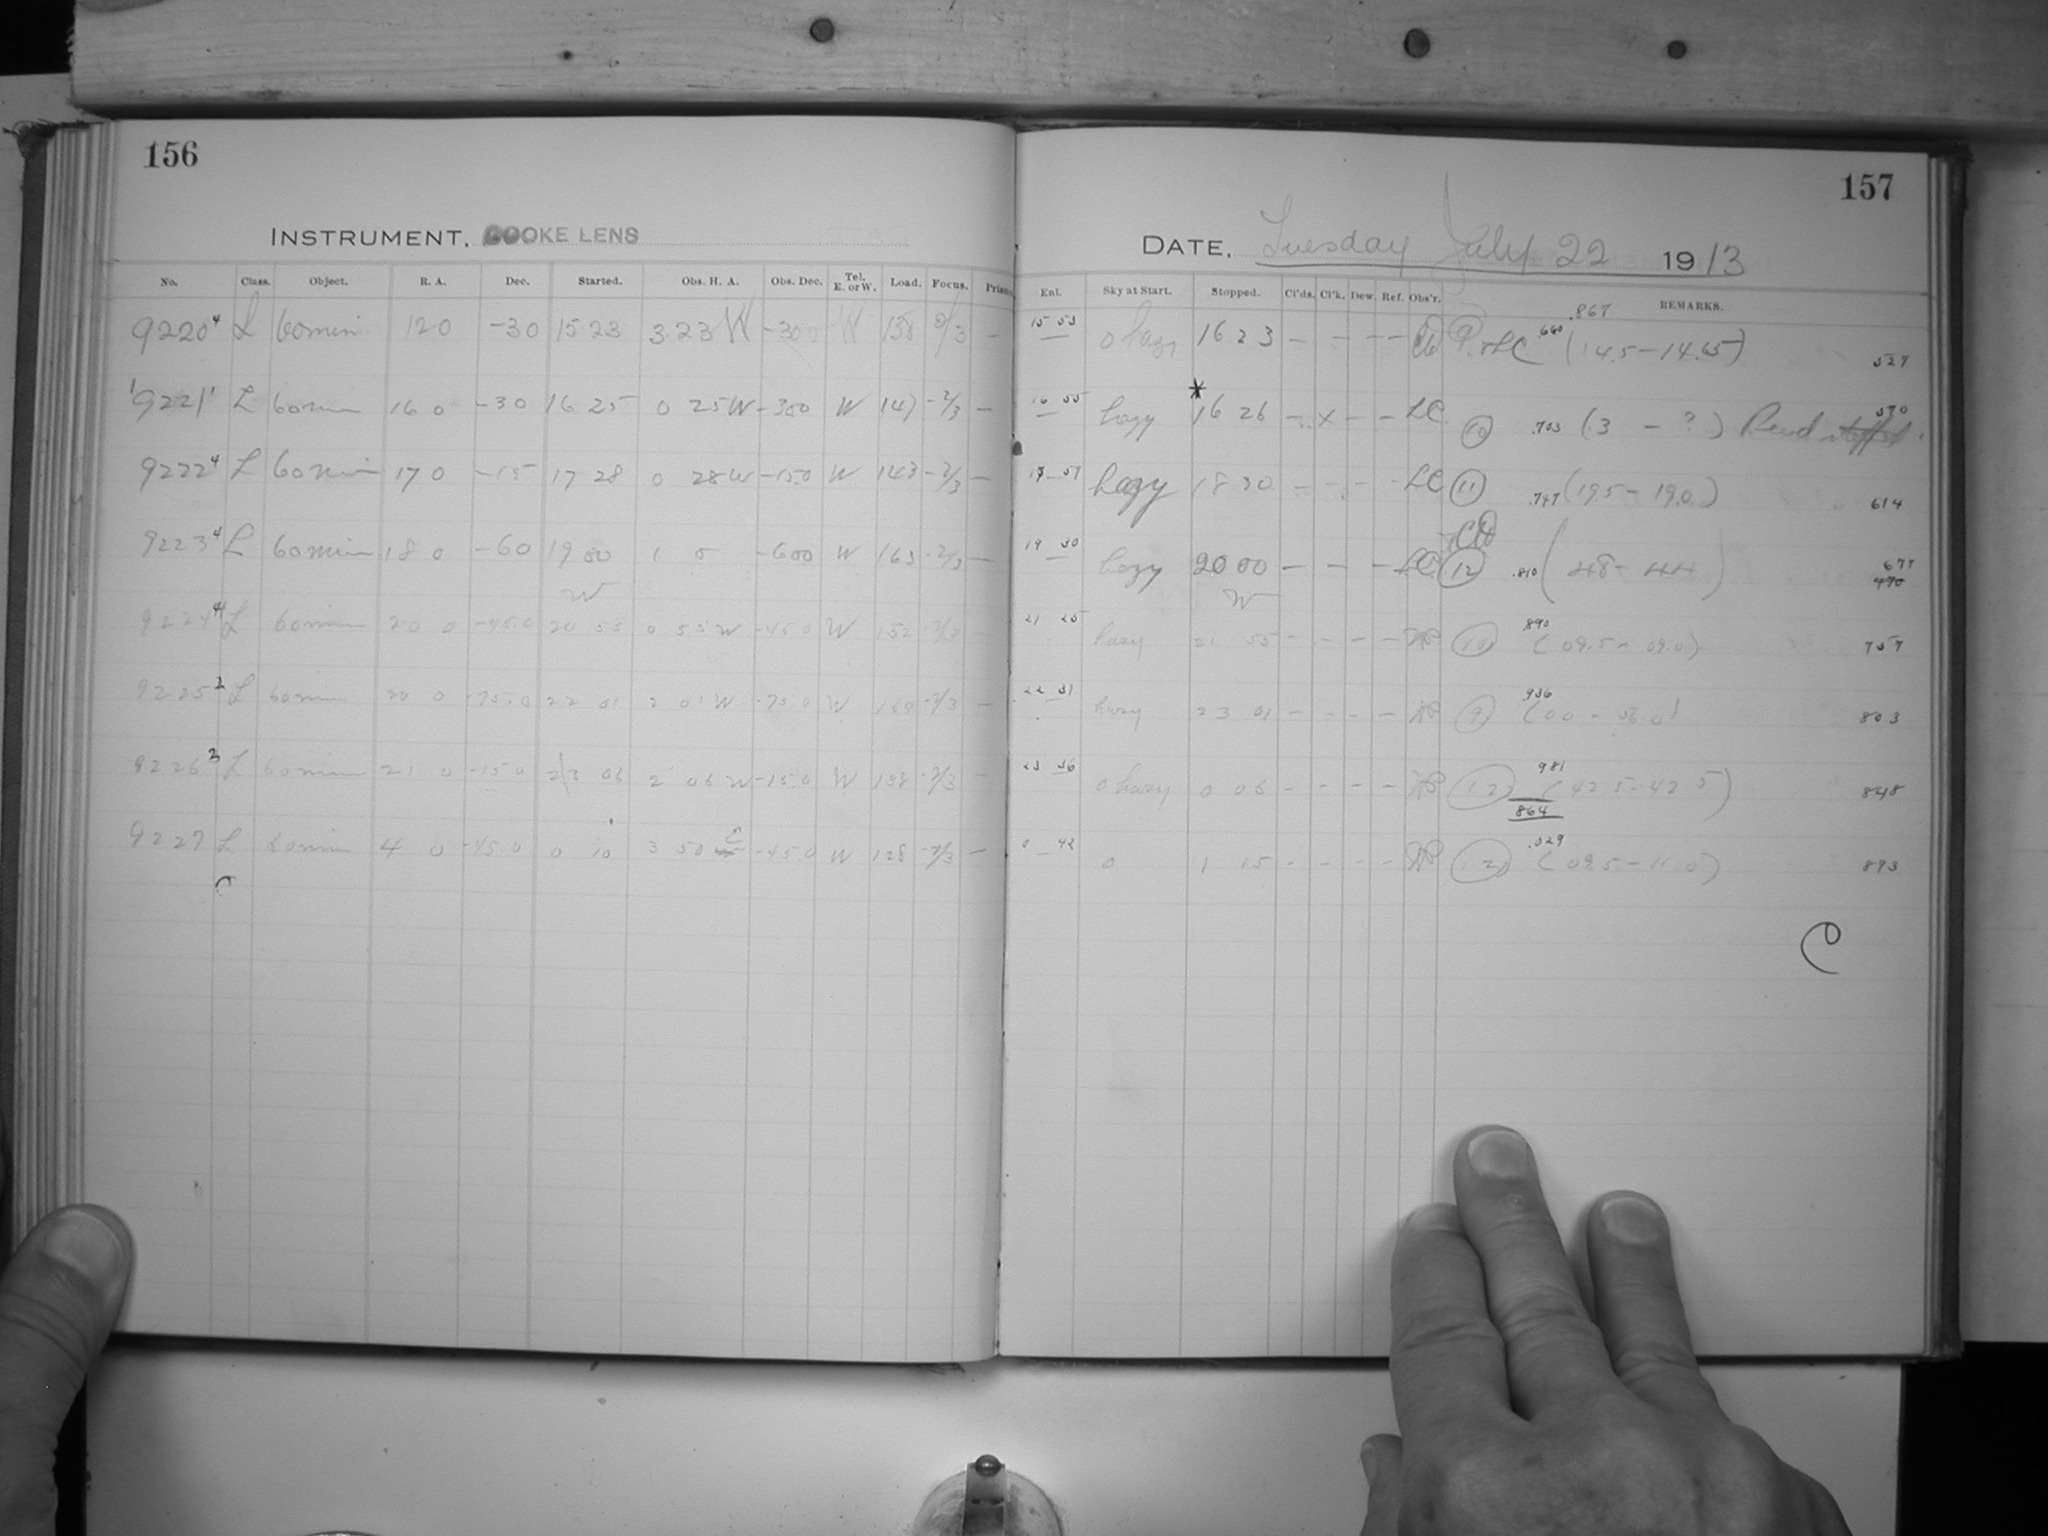 156
INSTRUMENT, COOKE LENS
No. Class. Object. R. A. Dec. Started. Obs. H. A. Obs. Dec. Tel. E. or W. Load. Focus. Prism
9220 4 L 60 min 12 0 -30 15 23 3 23 W -30 W 158 -
9221 1 L 60 min 16 0 -30 16 25 0 25 W -30 0 W 147 -2/3 -
9222 4 L 60 min 17 0 -15 17 28 0 28 W -15 0 W 143 -2/3 -
9223 4 L 60 min 18 0 -60 19 00 1 0 -60 0 W 163 -2/3 -
W
9224 4 L 60 min 20 0 -45.0 20 55 0 55 W -45 0 W 152 -2/3 -
9225 2 L 60 min 20 0 -75.0 22 01 2 01 W -75.0 W -2/3 -
9226 3 L 60 min 21 0 -15.0 23 06 2 06 W -15.0 W 138 -2/3 -
9227 L 60 min 4 0 -45.0 0 10 3 50 E -45.0 W 128 -2/3 -
157
DATE, Tuesday July 22 1913
Enl. Sky at Start. Stopped. Cl'ds. Cl'k. Dew. Ref. Obs'r. REMARKS.
.867
15 53 0 hazy 16 23 - - - - (14.5-14.65) 527
16 55 hazy * 16 26 - x - - LC (10) .703 (3 - ?) 570
17 57 hazy 18 30 - - - - LC (11) .747 (19.5-19.0) 614
19 30 hazy 20 00 - - - - LC (12) .810 (48-44) 677
470
W
21 25 hazy 21 55 - - - - (10) .890 (09.5-09.0) 757
22 31 hazy 23 01 - - - - (9) .936 (00-56.0) 803
23 36 0 hazy 0 06 - - - - (12) 981 (42 5-42 5) 848
864
0 42 0 1 15 - - - - (12) .029 (09.5-11.0) 893
C